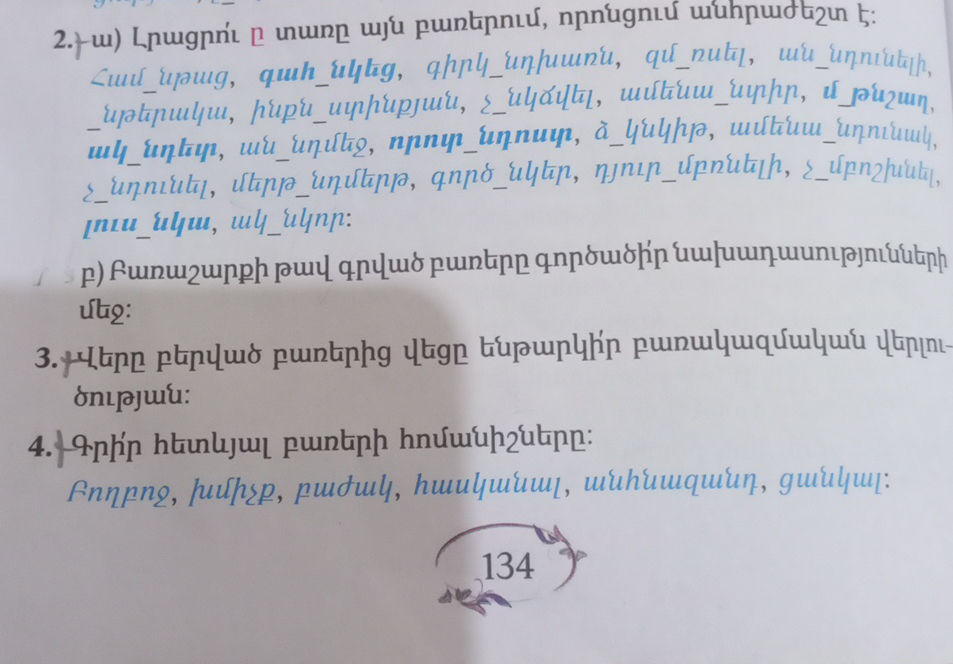 2. ա) Լրագրո՛ւ ը տառը այն բառերում, որոնցում անհրաժեշտ է:
Համ_նթաց, գահ_նկեց, գիրկ_նդխառն, գմ_ռսել, ան_նդունելի,
_նթերակա, ինքն_ստինքյան, չ_նկճվել, ամենա_նտիր, մ_թնշաղ,
ակ_նդետ, ան_նդմեջ, որոտ_նդոստ, ձ_կնկիթ, ամենա_նդունակ,
չ_նդունել, մերթ_նդմերթ, գործ_նկեր, դյուր_մբռնելի, չ_մբոշխնել,
լուս_նկա, ակ_նկոր:
բ) Բառաշարքի թավ գրված բառերը գործածի՛ր նախադասությունների
մեջ:
3. Վերը բերված բառերից վեցը ենթարկի՛ր բառակազմական վերլու-
ծության:
4. Գրի՛ր հետևյալ բառերի հոմանիշները:
Բողբոջ, խմիչք, բաժակ, հասկանալ, անհնազանդ, ցանկալ:
134